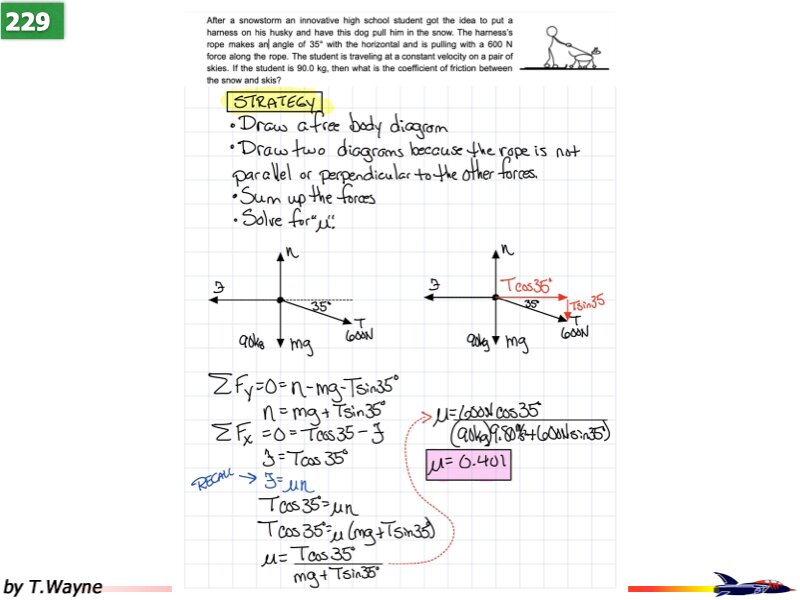 229
After a snowstorm an innovative high school student got the idea to put a
harness on his husky and have this dog pull him in the snow. The harness's
rope makes an angle of 35° with the horizontal and is pulling with a 600 N
force along the rope. The student is traveling at a constant velocity on a pair of
skies. If the student is 90.0 kg, then what is the coefficient of friction between
the snow and skis?
STRATEGY
• Draw a free body diagram
• Draw two diagrams because the rope is not
parallel or perpendicular to the other forces.
• Sum up the forces
• Solve for "μ".
n
F
35°
T
600N
90kg
mg
n
F
Tcos35°
35°
Tsin35
T
600N
90kg
mg
ΣFy=0=n-mg-Tsin35°
n=mg+Tsin35°
ΣFx=0=Tcos35-F
F=Tcos35°
RECALL → F=μn
Tcos35°=μn
Tcos35°=μ(mg+Tsin35°)
μ=Tcos35°
mg+Tsin35°
μ=600Ncos35°
(90kg)9.80m/s²+600Nsin35°)
μ=0.401
by T.Wayne